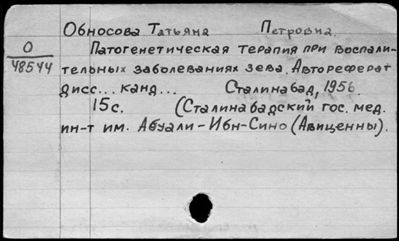 Обносова Татьяна Петровна
О
48544
Патогенетическая терапия при воспали-
тельных заболеваниях зева. Автореферат
дисс... канд... Сталинабад, 1956.
15с. (Сталинабадский гос. мед.
ин-т им. Абуали-Ибн-Сино (Авиценны).